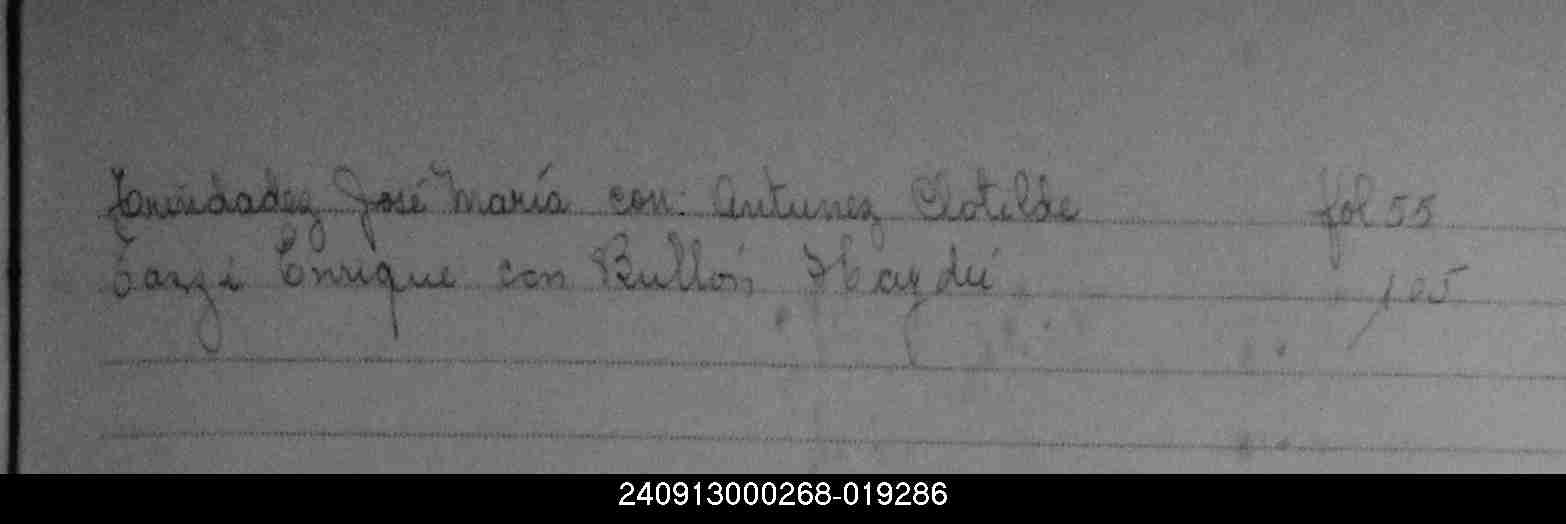 José María con Antunez Clotilde fol 55
Enrique con Bullón Haydeé 105
240913000268-019286